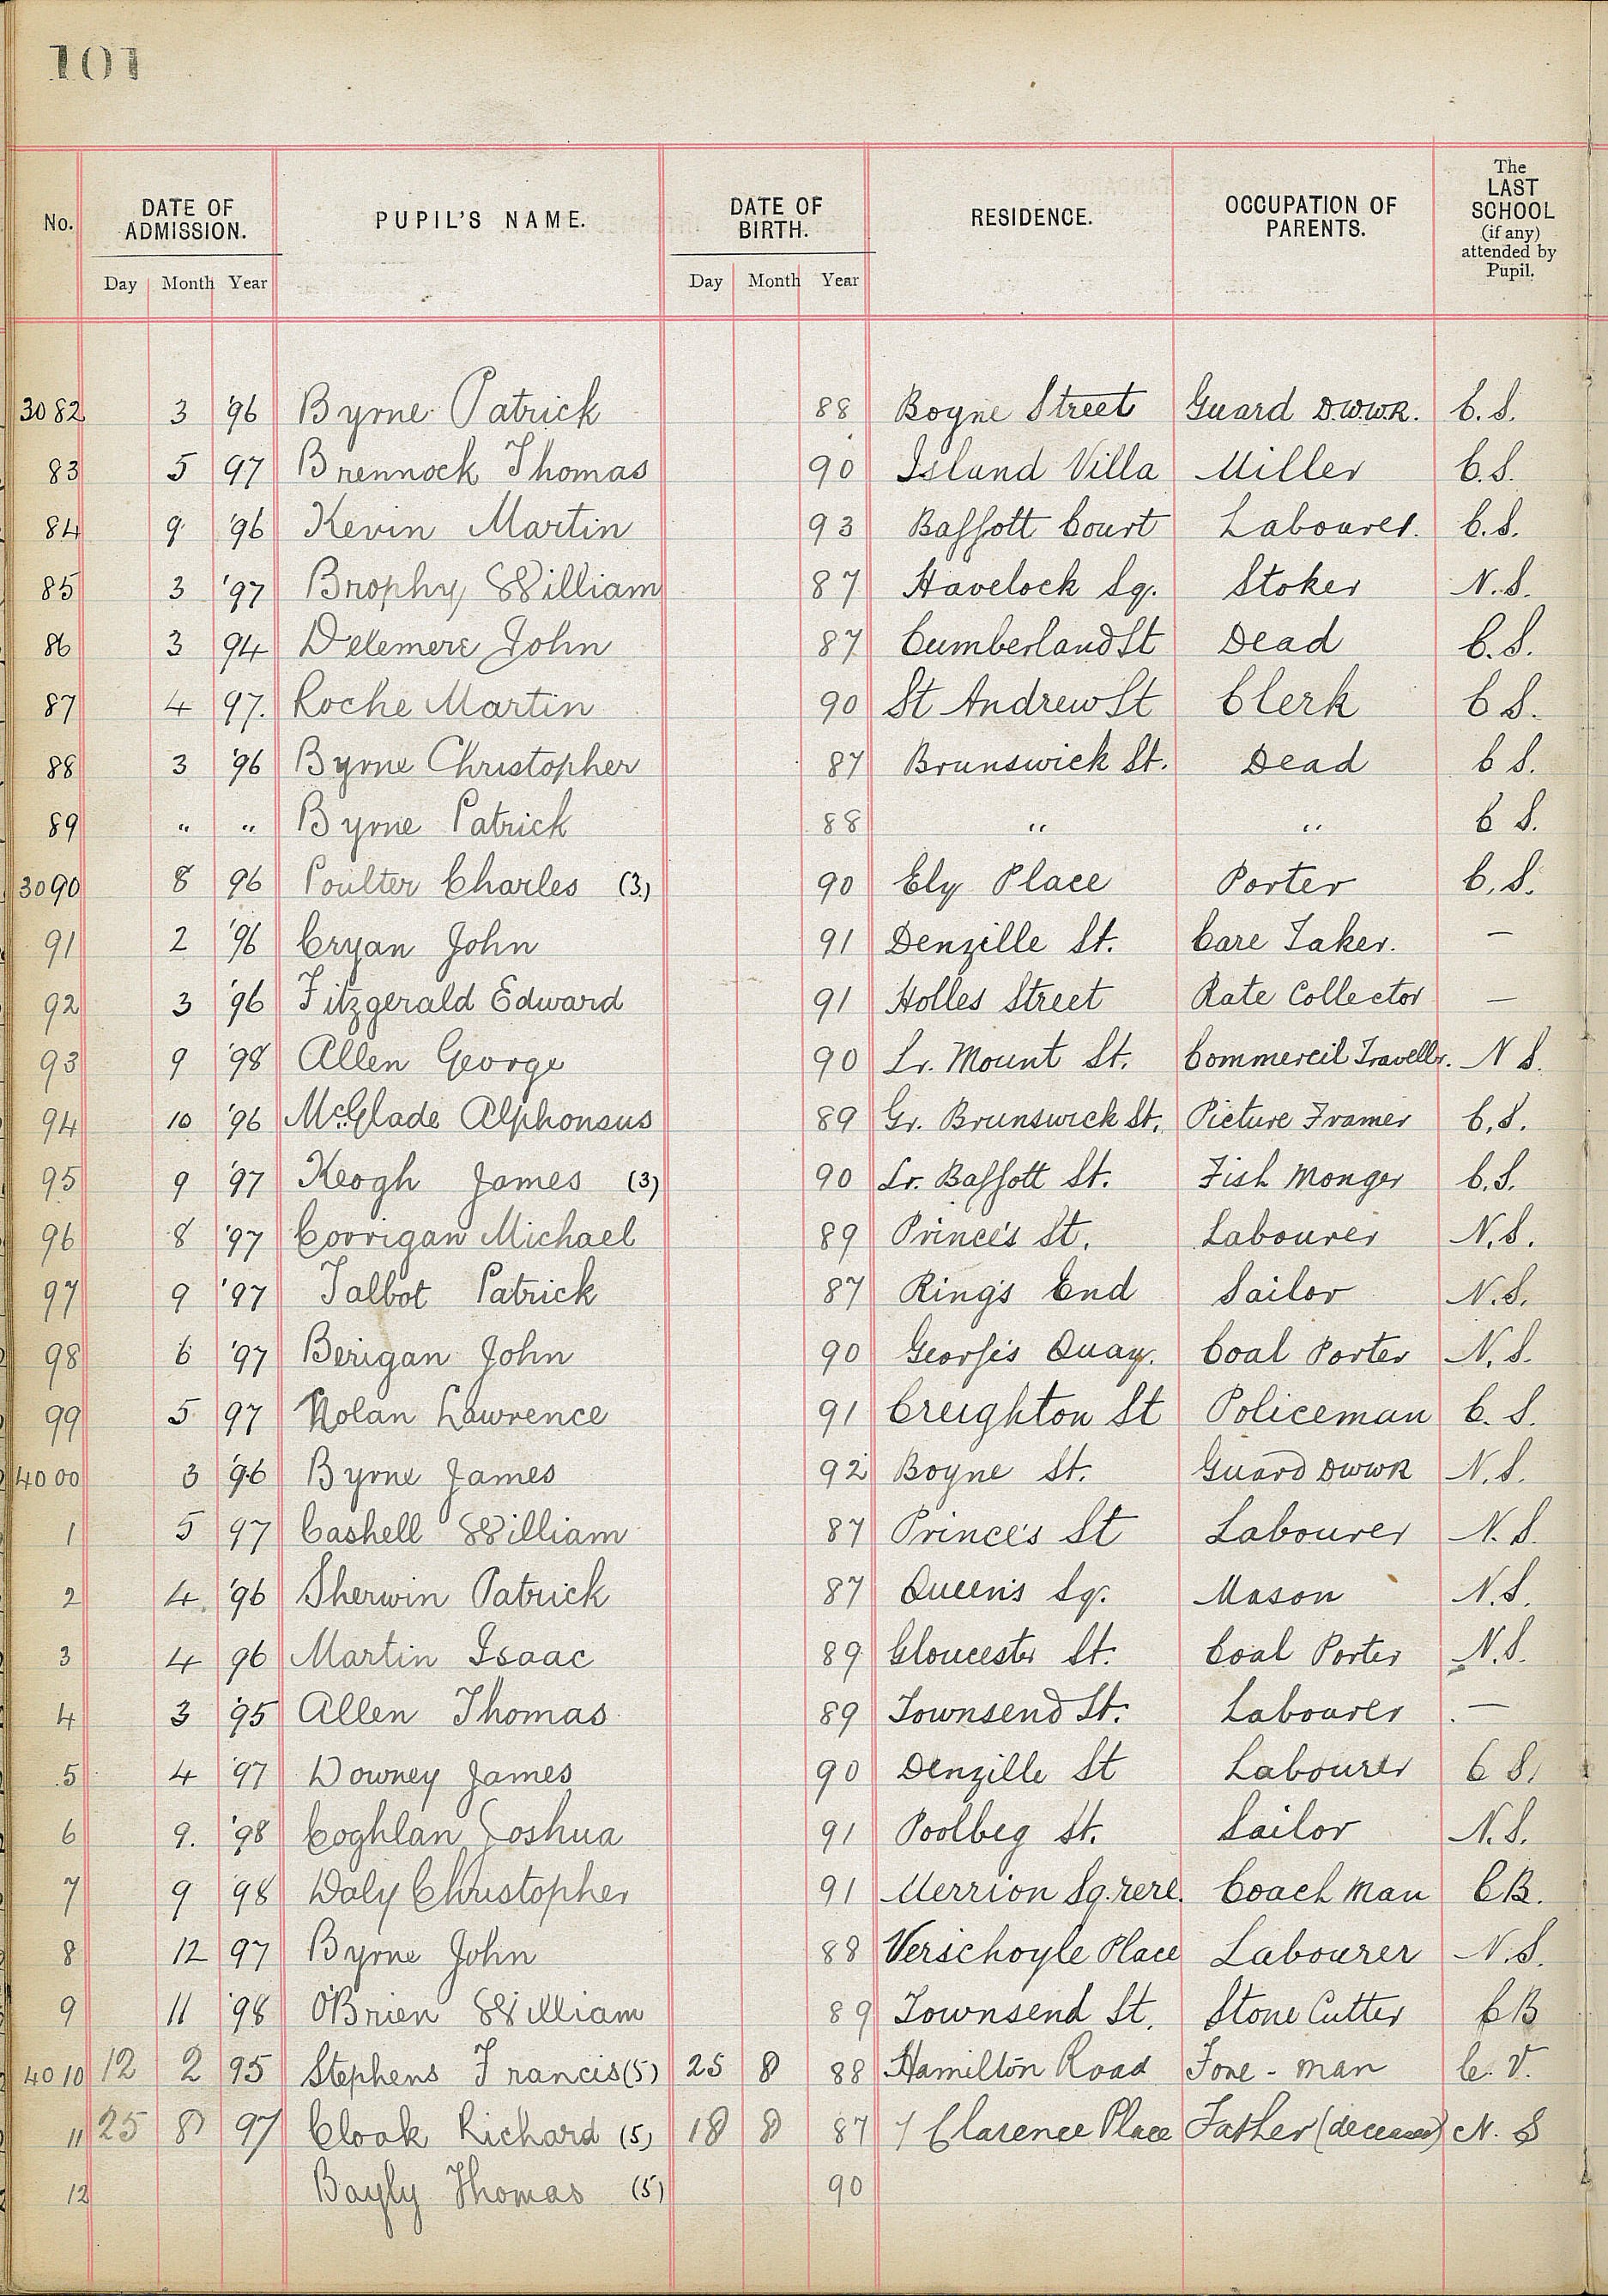 101
No. DATE OF ADMISSION. PUPIL'S NAME. DATE OF BIRTH. RESIDENCE. OCCUPATION OF PARENTS. The LAST SCHOOL (if any) attended by Pupil.
Day Month Year Day Month Year
3082 3 '96 Byrne Patrick 88 Boyne Street Guard D.W.W.R. C.S.
83 5 97 Brennock Thomas 90 Island Villa Miller C.S.
84 9 '96 Kevin Martin 93 Baffott Court Labourer. C.S.
85 3 '97 Brophy, William 87 Havelock Sq. Stoker N.S.
86 3 94 Delemere John 87 Cumberland St Dead C.S.
87 4 97. Roche Martin 90 St Andrew St Clerk C S.
88 3 '96 Byrne Christopher 87 Brunswick St. Dead C S.
89 " " Byrne Patrick 88 " " C S.
3090 8 96 Poulter Charles (3) 90 Ely Place Porter C.S.
91 2 '96 Cryan John 91 Denzille St. Care Taker. —
92 3 '96 Fitzgerald Edward 91 Holles Street Rate Collector —
93 9 '98 Allen George 90 Lr. Mount St. Commercil Travellr. N S.
94 10 '96 McGlade Alphonsus 89 Gr. Brunswick St. Picture Framer C.S.
95 9 '97 Keogh James (3) 90 Lr. Baffott St. Fish Monger C.S.
96 8 '97 Corrigan Michael 89 Prince's St. Labourer N.S.
97 9 '97 Talbot Patrick 87 Ring's End Sailor N.S.
98 6 '97 Berigan John 90 George's Quay. Coal Porter N.S.
99 5 97 Nolan Lawrence 91 Creighton St Policeman C. S.
4000 3 '96 Byrne James 92 Boyne St. Guard DWWR N.S.
1 5 97 Cashell William 87 Prince's St Labourer N.S.
2 4 '96 Sherwin Patrick 87 Queen's Sq. Mason N.S.
3 4 96 Martin Isaac 89 Gloucester St. Coal Porter N.S.
4 3 '95 Allen Thomas 89 Townsend St. Labourer —
5 4 '97 Downey James 90 Denzille St Labourer C S.
6 9. '98 Coghlan Joshua 91 Poolbeg St. Sailor N.S.
7 9 '98 Daly Christopher 91 Merrion Sq. Coach Man C B.
8 12 97 Byrne John 88 Verschoyle Place Labourer N.S.
9 11 '98 O'Brien William 89 Townsend St. Stone Cutter C B
4010 12 2 95 Stephens Francis (5) 25 8 88 Hamilton Road Fore-man C. V.
11 25 8 97 Cloak Richard (5) 18 8 87 7 Clarence Place Father (deceased) N. S
12 Bayly Thomas (5) 90